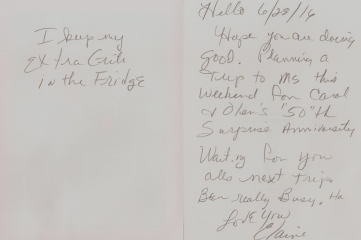 I keep my
Extra Grits
in the Fridge
Hello 6/28/16
Hope you are doing
good. Planning a
Trip to MS this
Weekend for Carol
& 's "50"th
Surprise Anniversity
Waiting for you
alls next trip
Been really Busy. Ha
Love You
Elaine